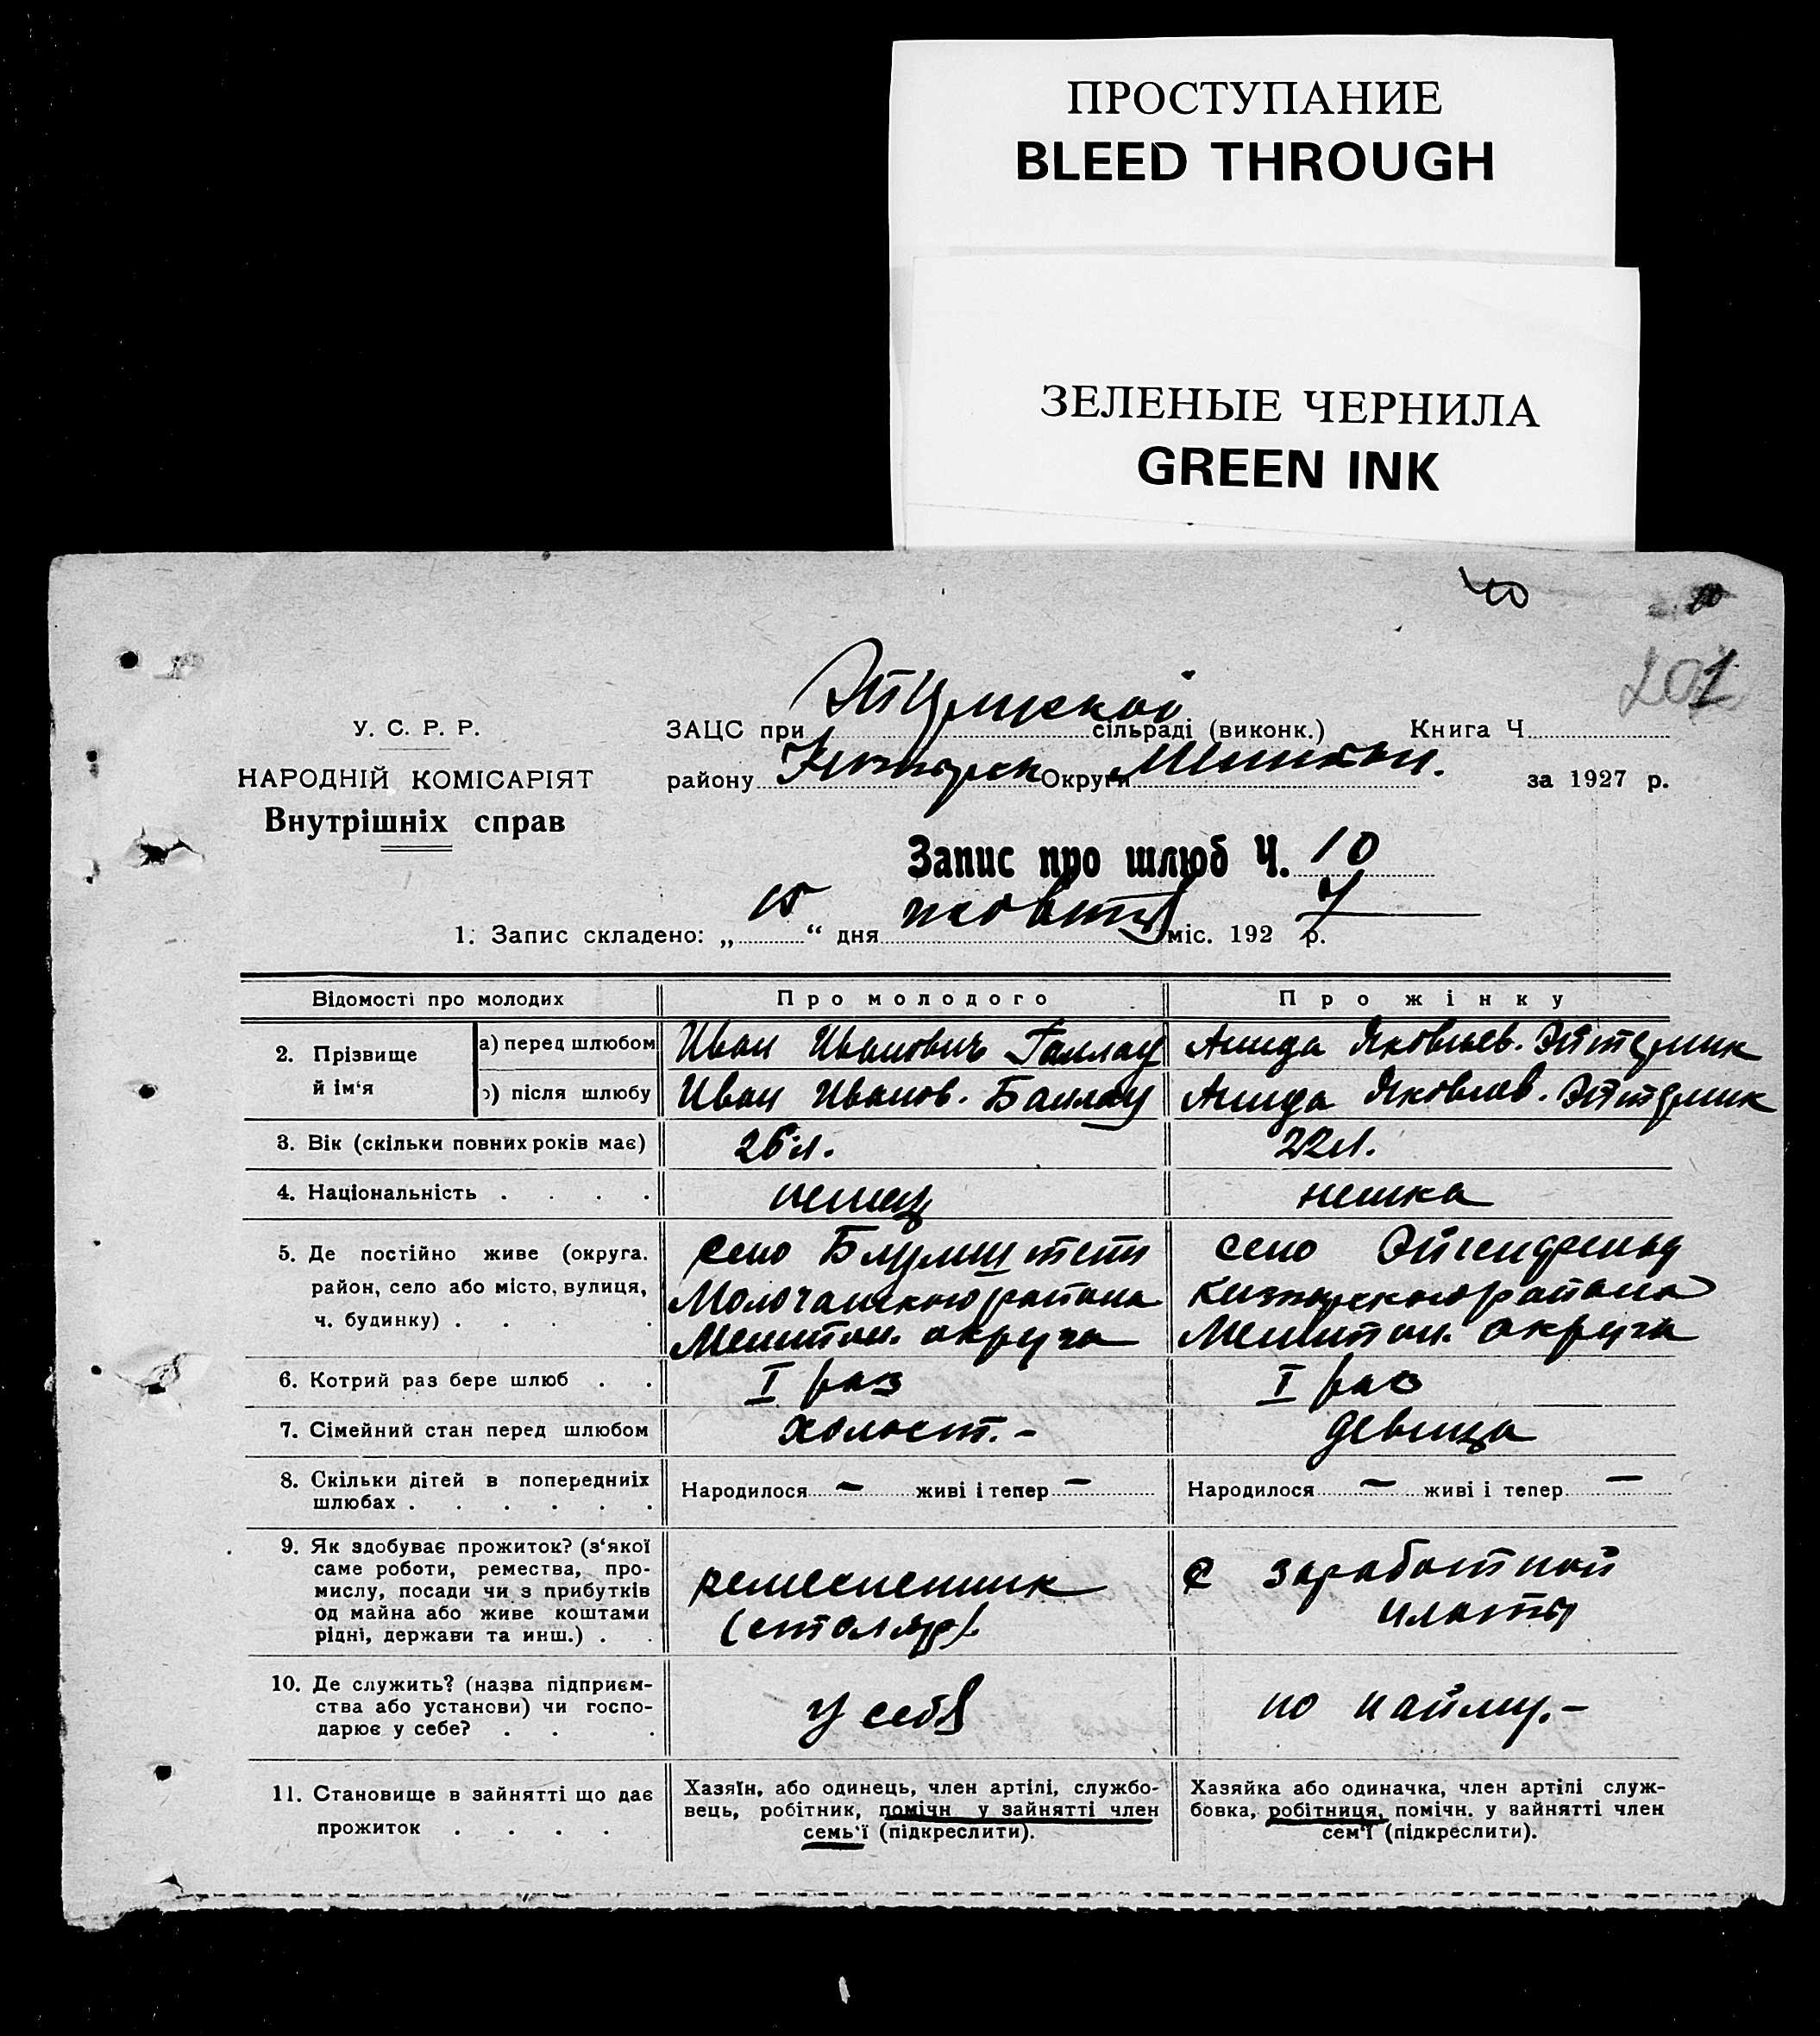 ПРОСТУПАНИЕ
BLEED THROUGH
ЗЕЛЕНЫЕ ЧЕРНИЛА
GREEN INK
40
201
У. С. Р. Р.
НАРОДНІЙ КОМІСАРІЯТ
Внутрішніх справ
ЗАЦС при сільраді (виконк.) Книга Ч.
району Округи за 1927 р.
Запис про шлюб Ч. 10
1. Запис складено: „15“ дня жовтня міс. 1927 р.
Відомості про молодих Про молодого Про жінку
2. Прізвище й ім‘я
а) перед шлюбом Иван Иванович Галлау Аница Яковлев.
) після шлюбу Иван Иванов. Баллау Яковлев.
3. Вік (скільки повних років має) 26 л. 22 л.
4. Національність . . . . немец немка
5. Де постійно живе (округа. район, село або місто, вулиця, ч. будинку) . . . .
село Блуменштейн
Молочанского района
Мелитоп. округа
село
района
Мелитоп. округа
6. Котрий раз бере шлюб . . I раз I раз
7. Сімейний стан перед шлюбом холост. – девица
8. Скільки дітей в попередниіх шлюбах . . . . . .
Народилося – живі і тепер –
Народилося – живі і тепер –
9. Як здобуває прожиток? (з‘якої
саме роботи, ремества, про-
мислу, посади чи з прибутків
од майна або живе коштами
рідні, держави та инш.) . .
ремесленник
(столяр).
с заработной
платы
10. Де служить? (назва підприєм-
ства або установи) чи госпо-
дарює у себе? . . .
у себя
по найму. –
11. Становище в зайнятті що дає
прожиток . . . .
Хазяїн, або одинець, член артілі, службо-
вець, робітник, помічн у зайнятті член
семь‘ї (підкреслити).
Хазяйка або одиначка, член артілі служ-
бовка, робітниця, помічн. у зайнятті член
сем‘ї (підкреслити).